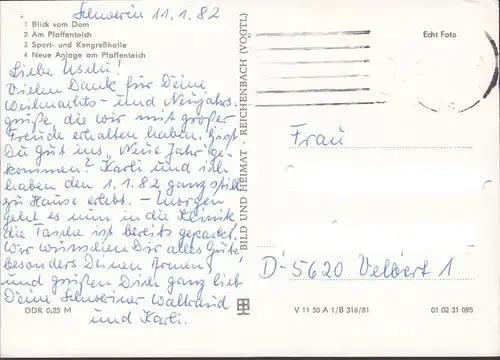 Schwerin 11.1.82
1 Blick vom Dom
2 Am Pfaffenteich
3 Sport- und Kongreßhalle
4 Neue Anlage am Pfaffenteich
Liebe Uschi!
Vielen Dank für Deine
Weihnachts- und Neujahrs-
grüße, die wir mit großer
Freude erhalten haben. Bist
Du gut ins „Neue Jahr" ge-
kommen? Karli und ich
haben den 1.1.82 ganz still
zu Hause erlebt. - Morgen
geht es nun in die Klinik
die Tasche ist bereits gepackt.
Wir wünschen Dir alles Gute
besonders Deinen Armen
und grüßen Dich ganz lieb
Deine Schweriner Waltraud
und Karli.
DDR 0,25 M
BILD UND HEIMAT · REICHENBACH (VOGTL)
Echt Foto
Frau
D-5620 Velbert 1
V 11 50 A 1/B 316/81
01 02 31 095